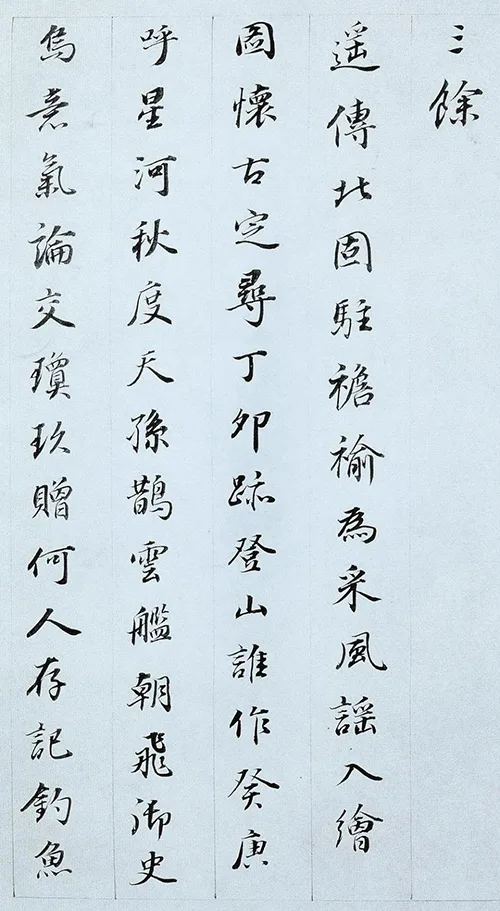 三餘
遥傳北固駐襜褕為采風謡入繪
圖懷古定尋丁卯跡登山誰作癸庚
呼星河秋度天孫鵲雲艦朝飛御史
烏意氣論交瓊玖贈何人存記釣魚